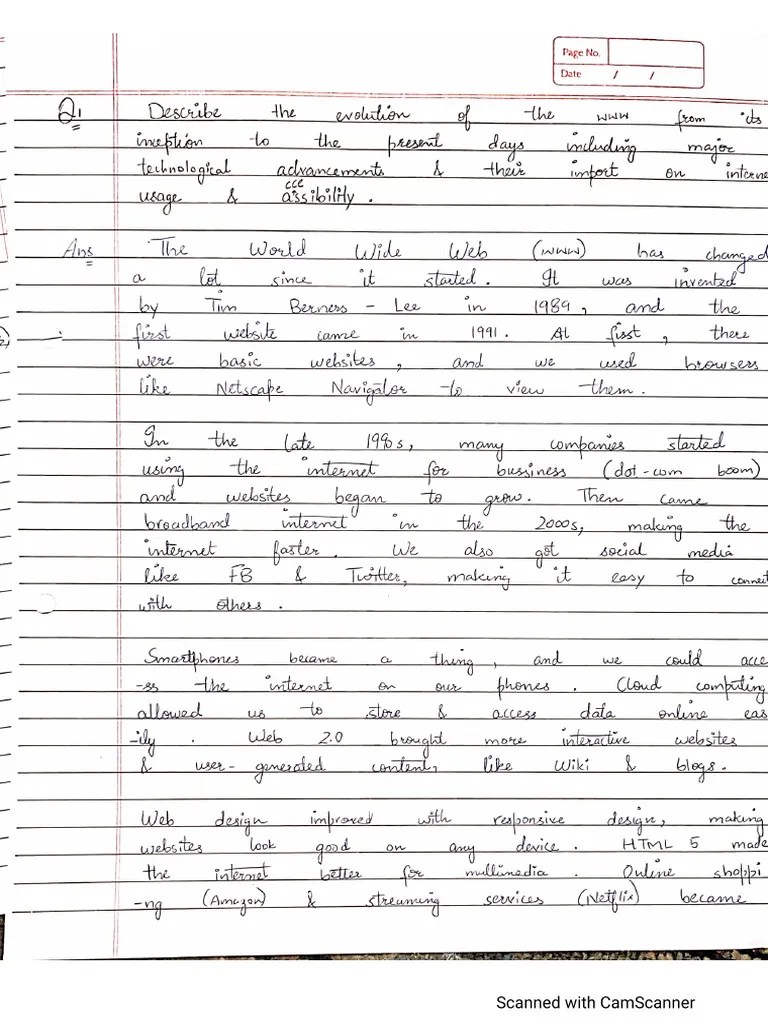 Page No.
Date / /
Q1 Describe the evolution of the www from its
inception to the present days including major
technological advancements & their import on interne
usage & assibility.
ccc
Ans The World Wide Web (www) has changed
a lot since it started. It was invented
by Tim Berners-Lee in 1989, and the
first website came in 1991. At first, there
were basic websites, and we used browsers
like Netscape Navigator to view them.
In the late 1990s, many companies started
using the internet for bussiness (dot-com boom)
and websites began to grow. Then came
broadband internet in the 2000s, making the
internet faster. We also got social media
like FB & Twitter, making it easy to connect
with others.
Smartphones became a thing, and we could acce
-ss the internet on our phones. Cloud computing
allowed us to store & access data online eas
-ily. Web 2.0 brought more interactive websites
& user-generated content, like Wiki & blogs.
Web design improved with responsive design, making
websites look good on any device. HTML 5 made
the internet better for multimedia. Online shoppi
-ng (Amazon) & streaming services (Netflix) became
Scanned with CamScanner